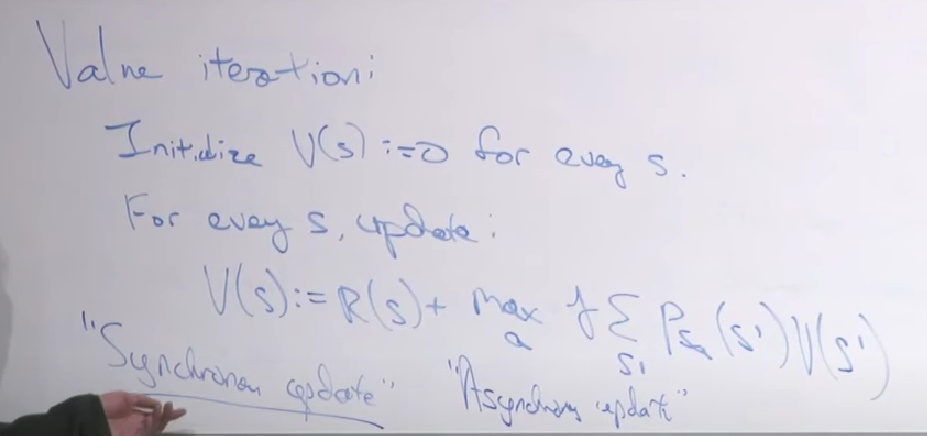 Value iteration:
Initialize V(s) := 0 for every s.
For every s, update:
V(s) := R(s) + max_a γ Σ_s' P_sa(s') V(s')
"Synchronous update" "Asynchronous update"